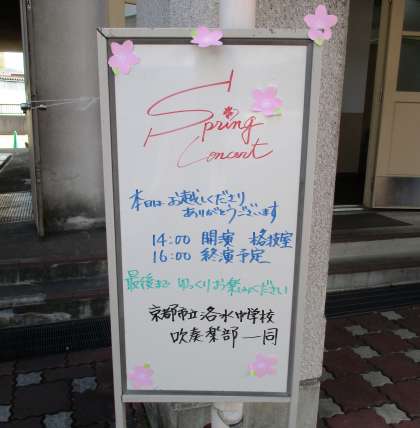 Spring
Concert
本日は お越しくださり
ありがとうございます
14:00 開演 格技室
16:00 終演予定
最後まで ゆっくりお楽しみください
京都市立洛水中学校
吹奏楽部一同